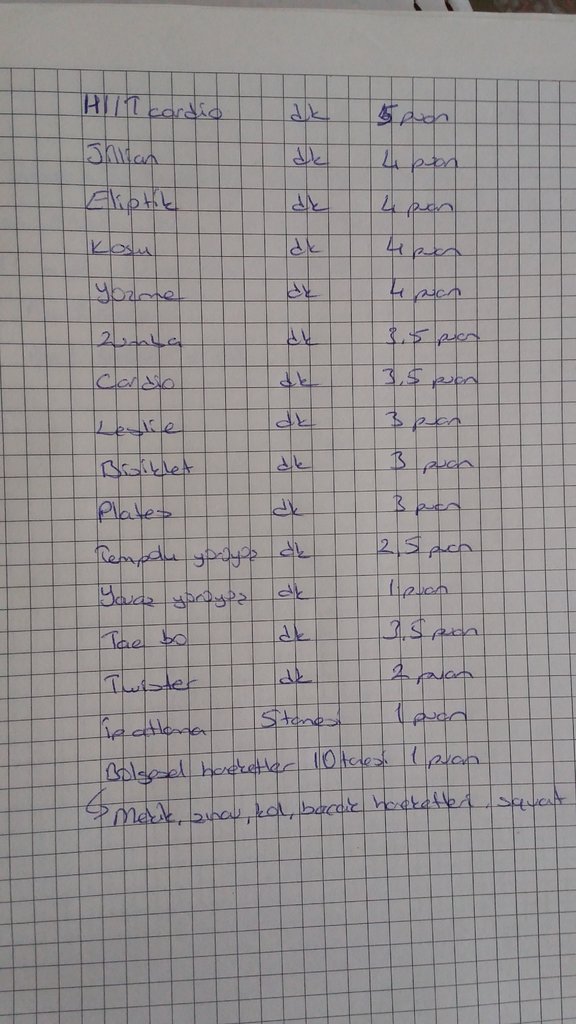 HIIT cardio dk 5 puan
Jillian dk 4 puan
Eliptik dk 4 puan
Koşu dk 4 puan
Yüzme dk 4 puan
Zumba dk 3,5 puan
Cardio dk 3,5 puan
Leslie dk 3 puan
Bisiklet dk 3 puan
Plates dk 3 puan
Tempolu yürüyüş dk 2,5 puan
Yavaş yürüyüş dk 1 puan
Tae bo dk 3,5 puan
Twister dk 2 puan
İp atlama 5 tanesi 1 puan
Bölgesel hareketler 10 tanesi 1 puan
Mekik, şınav, kol, bacak hareketleri, squat